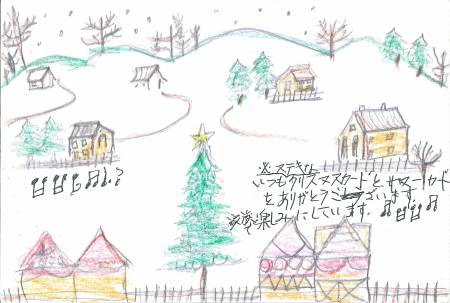 ステキな
いつもクリスマスカードと サマーカード
を ありがとうございます。
楽しみにしています。